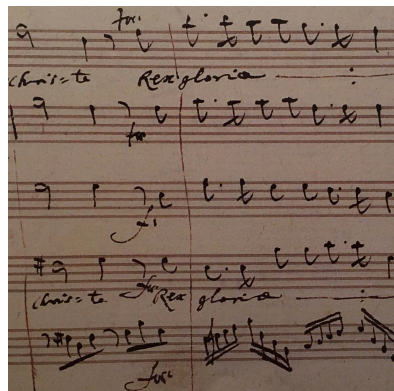 for:
Chris=te Rex gloriae
for
f:
for:
Chris=te Rex gloriae
for: